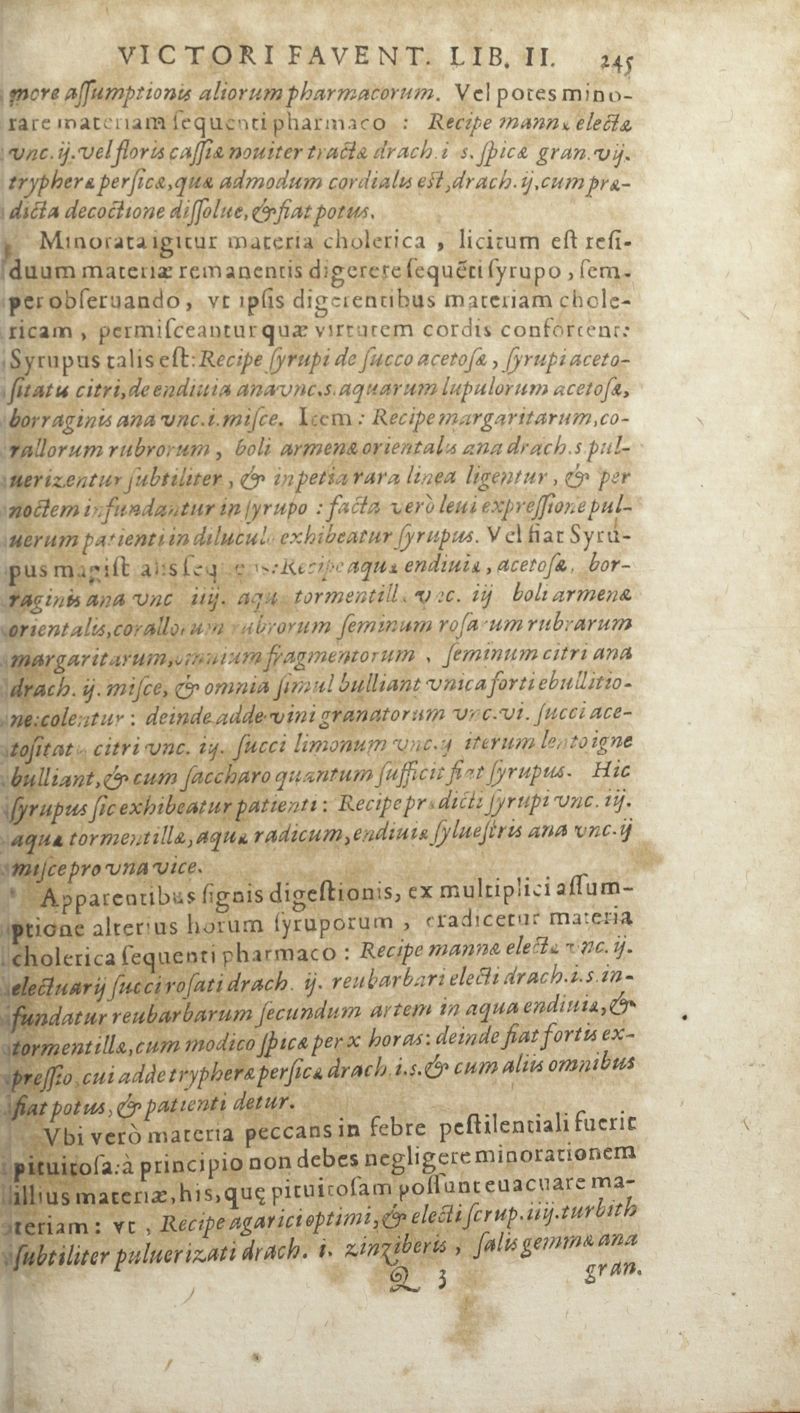 VICTORI FAVENT. LIB. II. 245
more assumptionis aliorum pharmacorum. Vel potes mino-
rare materiam sequenti pharmaco : Recipe mannæ electæ
vnc. ij. vel floris cassiæ nouiter tractæ drach. i s. spicæ gran. vij.
tryphera persicæ, quæ admodum cordialis est, drach. ij, cum præ-
dicta decoctione dissolue, & fiat potus.
Minorata igitur materia cholerica , licitum est resi-
duum materiæ remanentis digerere sequẽti syrupo , sem-
per obseruando , vt ipsis digerentibus materiam chole-
ricam , permisceantur quæ virtutem cordis confortent:
Syrupus talis est: Recipe syrupi de succo acetosæ, syrupi aceto-
sitatis citri, de endiuia ana vnc. s. aquarum lupulorum acetosæ,
borraginis ana vnc. i. misce. Item : Recipe margaritarum, co-
rallorum rubrorum , boli armenæ orientalis ana drach. s. pul-
uerizentur subtiliter , & in petia rara linea ligentur , & per
noctem infundantur in syrupo : facta vero leui expressione pul-
uerum patienti in diluculo exhibeatur syrupus. Vel fiat Syru-
pus magist alis seq : Recipe aquæ endiuiæ , acetosæ, bor-
raginis ana vnc iiij. aquæ tormentill. vnc. iij boli armenæ
orientalis, corallorum rubrorum seminum rosarum rubrarum
margaritarum, omnium fragmentorum , seminum citri ana
drach. ij. misce, & omnia simul bulliant vnica forti ebullitio-
ne: colentur : deinde adde vini granatorum vnc. vi. succi ace-
tositat citri vnc. iij. succi limonum vnc. ij iterum lento igne
bulliant, & cum saccharo quantum sufficit fiat syrupus. Hic
syrupus sic exhibeatur patienti : Recipe prædicti syrupi vnc. iij.
aquæ tormentillæ, aquæ radicum, endiuiæ syluestris ana vnc. ij
misce pro vna vice.
Apparentibus signis digestionis, ex multiplici assum-
ptione alterius horum syruporum , eradicetur materia
cholerica sequenti pharmaco : Recipe mannæ electæ vnc. ij.
electuarij succi rosati drach. ij. reubarbari electi drach. i. s. in-
fundatur reubarbarum secundum artem in aqua endiuiæ, &
tormentillæ, cum modico spicæ per x horas: deinde fiat fortis ex-
pressio, cui adde trypheræ persicæ drach. i. s. & cum aliis omnibus
fiat potus, & patienti detur.
Vbi verò materia peccans in febre pestilentiali fuerit
pituitosa: à principio non debes negligere minorationem
illius materiæ, his, quę pituitosam possunt euacuare ma-
teriam : vt , Recipe agarici optimi, & electi scrup. iiij. turbith
subtiliter puluerizati drach. i. zinziberis , salis gemmæ ana
Q 3 gran.